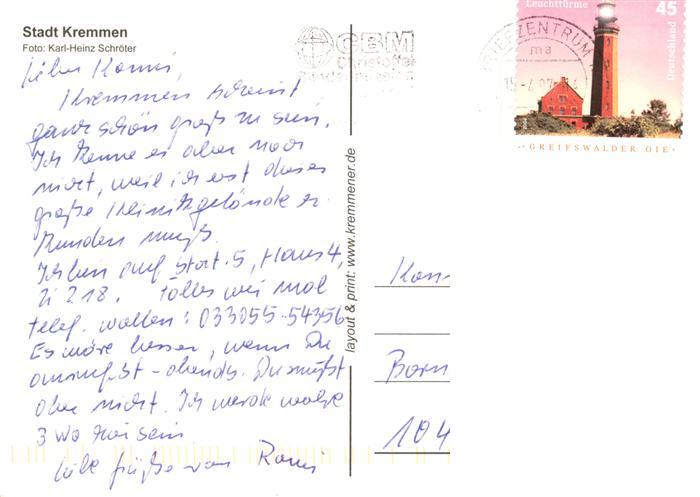 Stadt Kremmen
Foto: Karl-Heinz Schröter
Kremmen scheint
ganz schön groß zu sein.
Ich kenne es aber noch
nicht, weil ich erst dieses
große Klinikgelände er
kunden muß.
Ich bin auf Stat. 5, Haus 4,
Zi 218. Falls wir mal
telef. wollen: 033055-54356
Es wäre besser, wenn Du
anrufst - abends. Du mußt
aber nicht. Ich werde wohl
3 Wo hier sein.
Liebe Grüße von
layout & print: www.kremmener.de
CBM
Christoffel
BRIEFZENTRUM
Leuchttürme
45
Deutschland
GREIFSWALDER OIE
Born
104